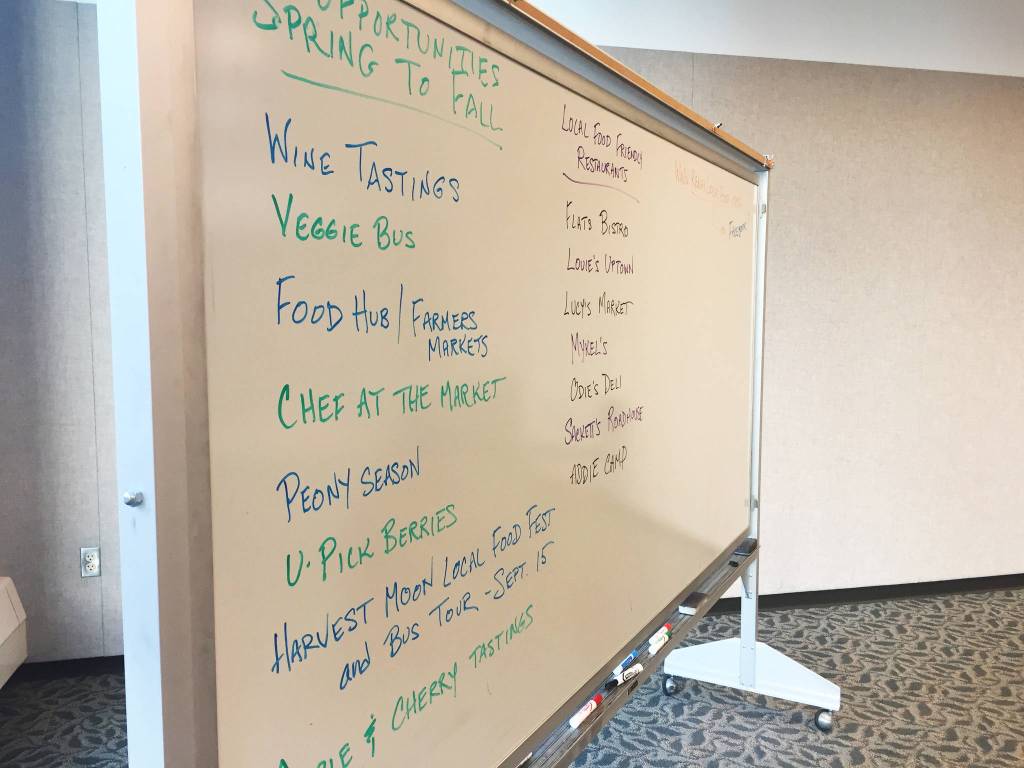 OPPORTUNITIES
SPRING TO FALL
WINE TASTINGS
VEGGIE BUS
FOOD HUB / FARMERS
MARKETS
CHEF AT THE MARKET
PEONY SEASON
U-PICK BERRIES
HARVEST MOON LOCAL FOOD FEST
and BUS TOUR - SEPT. 15
& CHERRY TASTINGS
LOCAL FOOD FRIENDLY
RESTAURANTS
FLATS BISTRO
LOUIE'S UPTOWN
LUCY'S MARKET
MYKEL'S
ODIE'S DELI
SACKETT'S ROADHOUSE
ADDIE CAMP